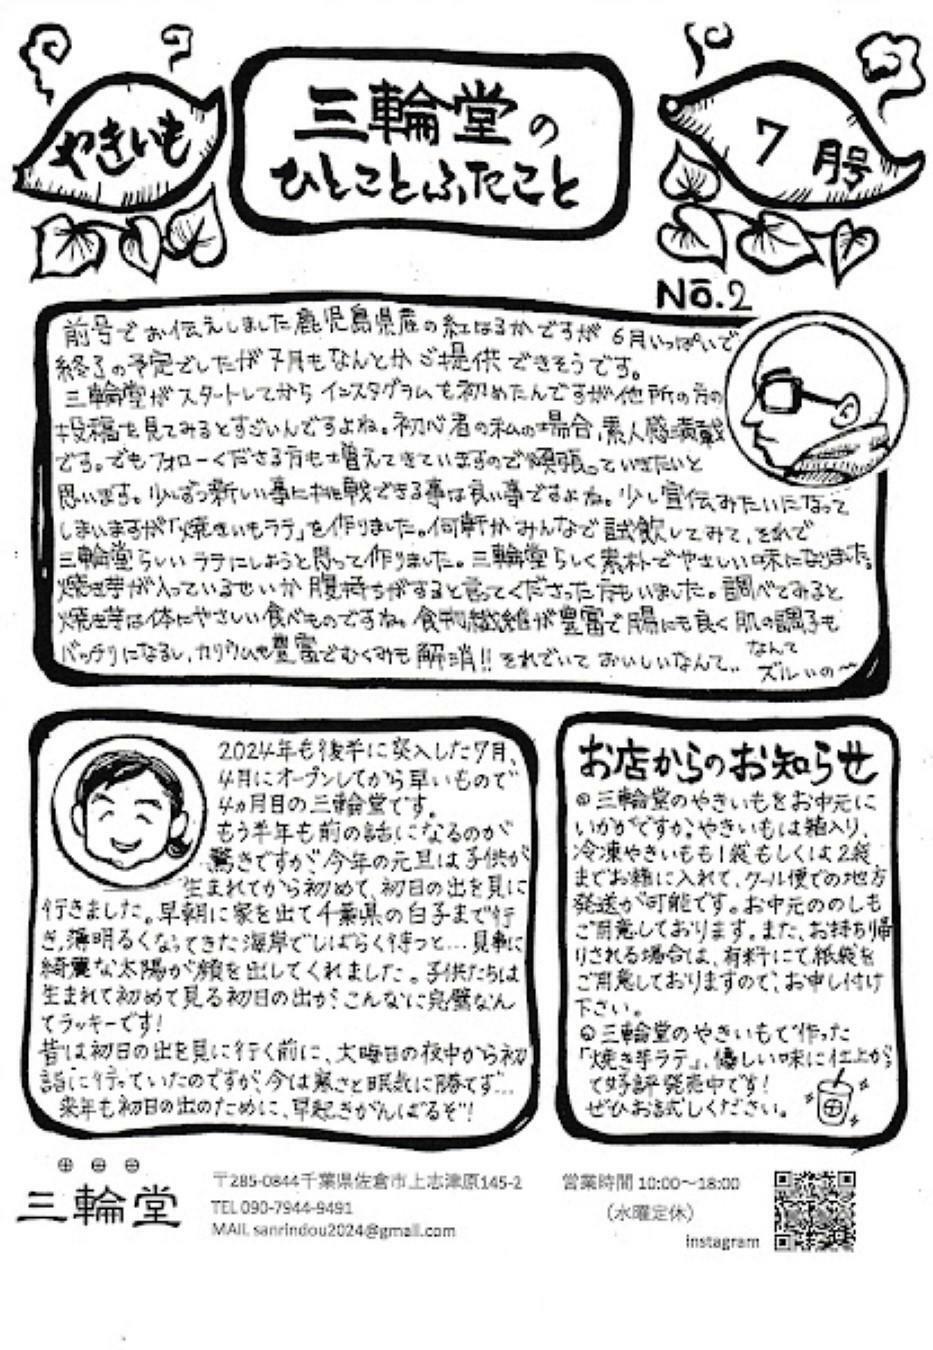 やきいも
三輪堂の
ひとことふたこと
7月号
No.2
前号でお伝えしました鹿児島県産の紅はるかですが6月いっぱいで
終了の予定でしたが7月もなんとかご提供できそうです。
三輪堂がスタートしてからインスタグラムを初めたんですが他所の方の
投稿を見てみるとすごいんですよね。初心者の私の場合、素人感満載
です。でもフォローくださる方も増えてきていますので頑張っていきたいと
思います。少しずつ新しい事に挑戦できる事は良い事ですよね。少し宣伝みたいになって
しまいますが「焼きいもラテ」を作りました。何軒かみんなで試飲してみて、それで
三輪堂らしいラテにしようと思って作りました。三輪堂らしく素朴でやさしい味になりました。
焼き芋が入っているせいか腹持ちがすると言ってくださった方もいました。調べてみると
焼き芋は体にやさしい食べものですね。食物繊維が豊富で腸にも良く肌の調子も
バッチリになるし、カリウムも豊富でむくみも解消!!それでいておいしいなんて‥
なんて
ズルいの〜
2024年も後半に突入した7月、
4月にオープンしてから早いもので
4ヵ月目の三輪堂です。
もう半年も前の話になるのが
驚きですが、今年の元旦は子供が
生まれてから初めて、初日の出を見に
行きました。早朝に家を出て千葉県の白子まで行
き、薄明るくなってきた海岸でしばらく待つと…見事に
綺麗な太陽が顔を出してくれました。子供たちは
生まれて初めて見る初日の出が、こんなに完璧なん
てラッキーです!
昔は初日の出を見に行く前に、大晦日の夜中から初
詣に行っていたのですが、今は寒さと眠気に勝てず…
来年も初日の出のために、早起きがんばるぞ!
お店からのお知らせ
三輪堂のやきいもをお中元に
いかがですか。やきいもは箱入り、
冷凍やきいもも1袋もしくは2袋
までお箱に入れて、クール便での地方
発送が可能です。お中元ののしも
ご用意しております。また、お持ち帰
りされる場合は、有料にて紙袋を
ご用意しておりますので、お申し付け
下さい。
三輪堂のやきいもで作った
「焼き芋ラテ」、優しい味に仕上がっ
て好評発売中です!
ぜひお試しください。
三輪堂
〒285-0844千葉県佐倉市上志津原145-2
TEL 090-7944-9491
MAIL sanrindou2024@gmail.com
営業時間 10:00〜18:00
(水曜定休)
instagram